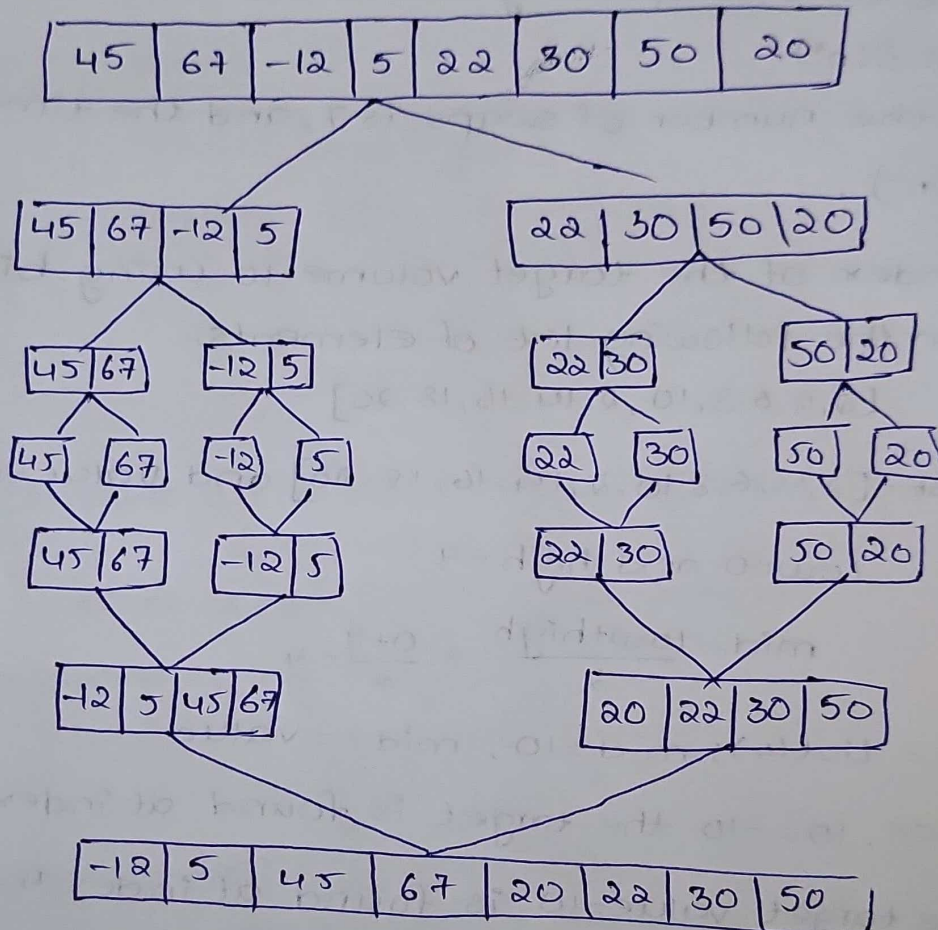 45 67 -12 5 22 30 50 20
45 67 -12 5 22 30 50 20
45 67 -12 5 22 30 50 20
45 67 -12 5 22 30 50 20
45 67 -12 5 22 30 50 20
-12 5 45 67 20 22 30 50
-12 5 45 67 20 22 30 50